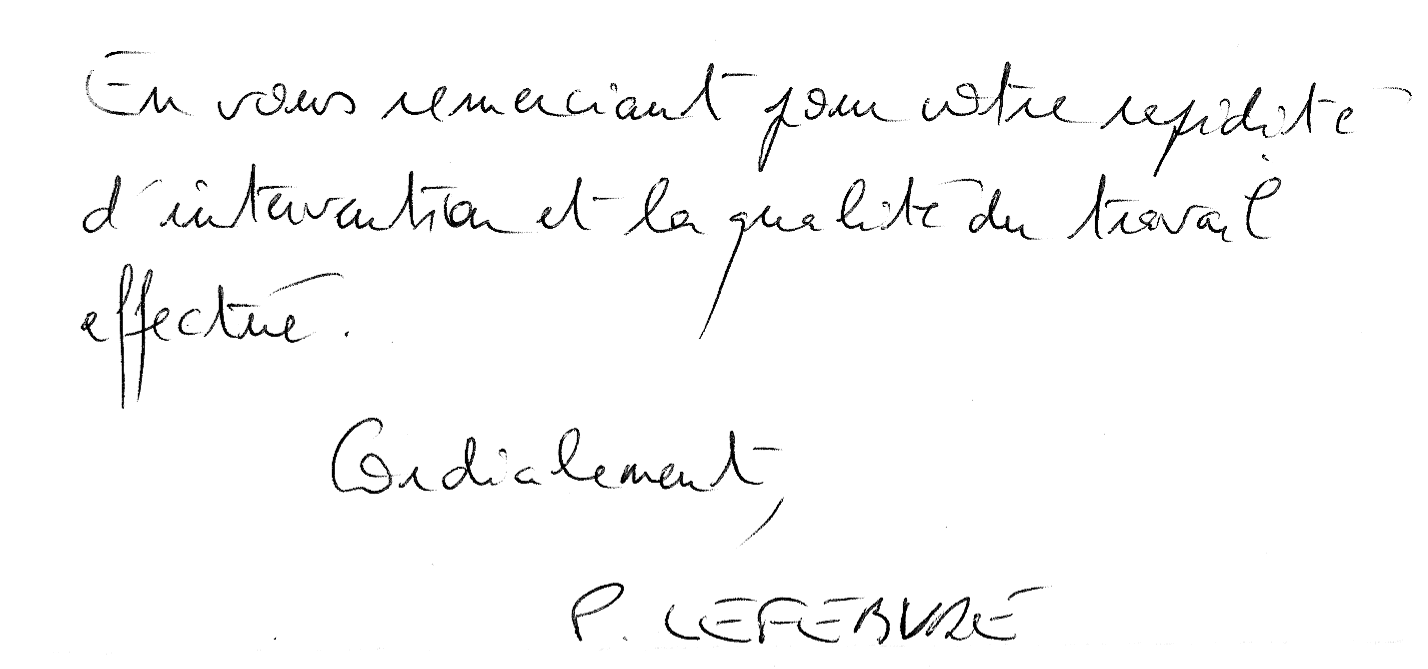 En vous remerciant pour votre rapidité
d'intervention et la qualité du travail
effectué.
Cordialement,
P. LEFEBVRE